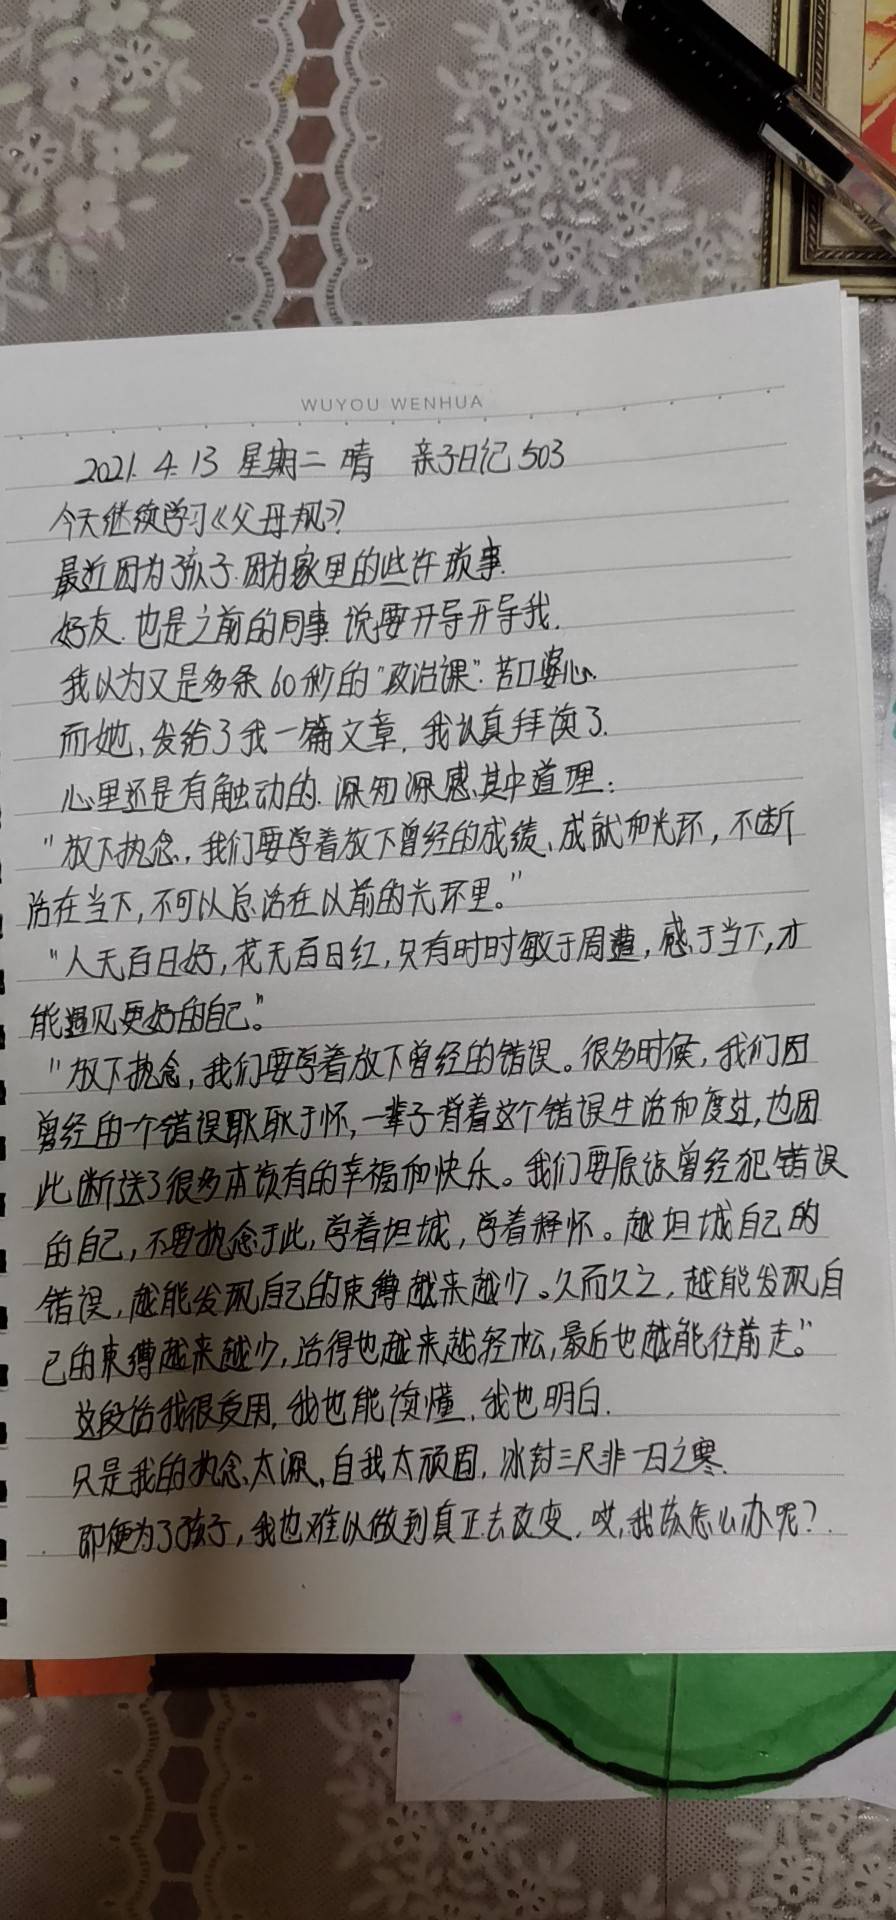 WUYOU WENHUA
2021.4.13 星期二 晴 亲子日记503
今天继续学习《父母规》
最近因为孩子.因为家里的些许琐事.
好友.也是之前的同事.说要开导开导我.
我以为又是多条60秒的"政治课".苦口婆心.
而她,发给了我一篇文章,我认真拜读了.
心里还是有触动的.深知深感其中道理:
"放下执念,我们要学着放下曾经的成绩、成就和光环,不断
活在当下,不可以总活在以前的光环里。"
"人无百日好,花无百日红,只有时时敏于周遭,感于当下,才
能遇见更好的自己。"
"放下执念,我们要学着放下曾经的错误。很多时候,我们因
曾经的一个错误耿耿于怀,一辈子背着这个错误生活和度过,也因
此断送了很多本该有的幸福和快乐。我们要原谅曾经犯错误
的自己,不要执念于此,学着坦诚,学着释怀。越坦诚自己的
错误,越能发现自己的束缚越来越少。久而久之,越能发现自
己的束缚越来越少,活得也越来越轻松,最后也越能往前走。"
这段话我很受用,我也能读懂,我也明白.
只是我的执念太深,自我太顽固,冰封三尺非一日之寒.
即便为了孩子,我也难以做到真正去改变,哎,我该怎么办呢?